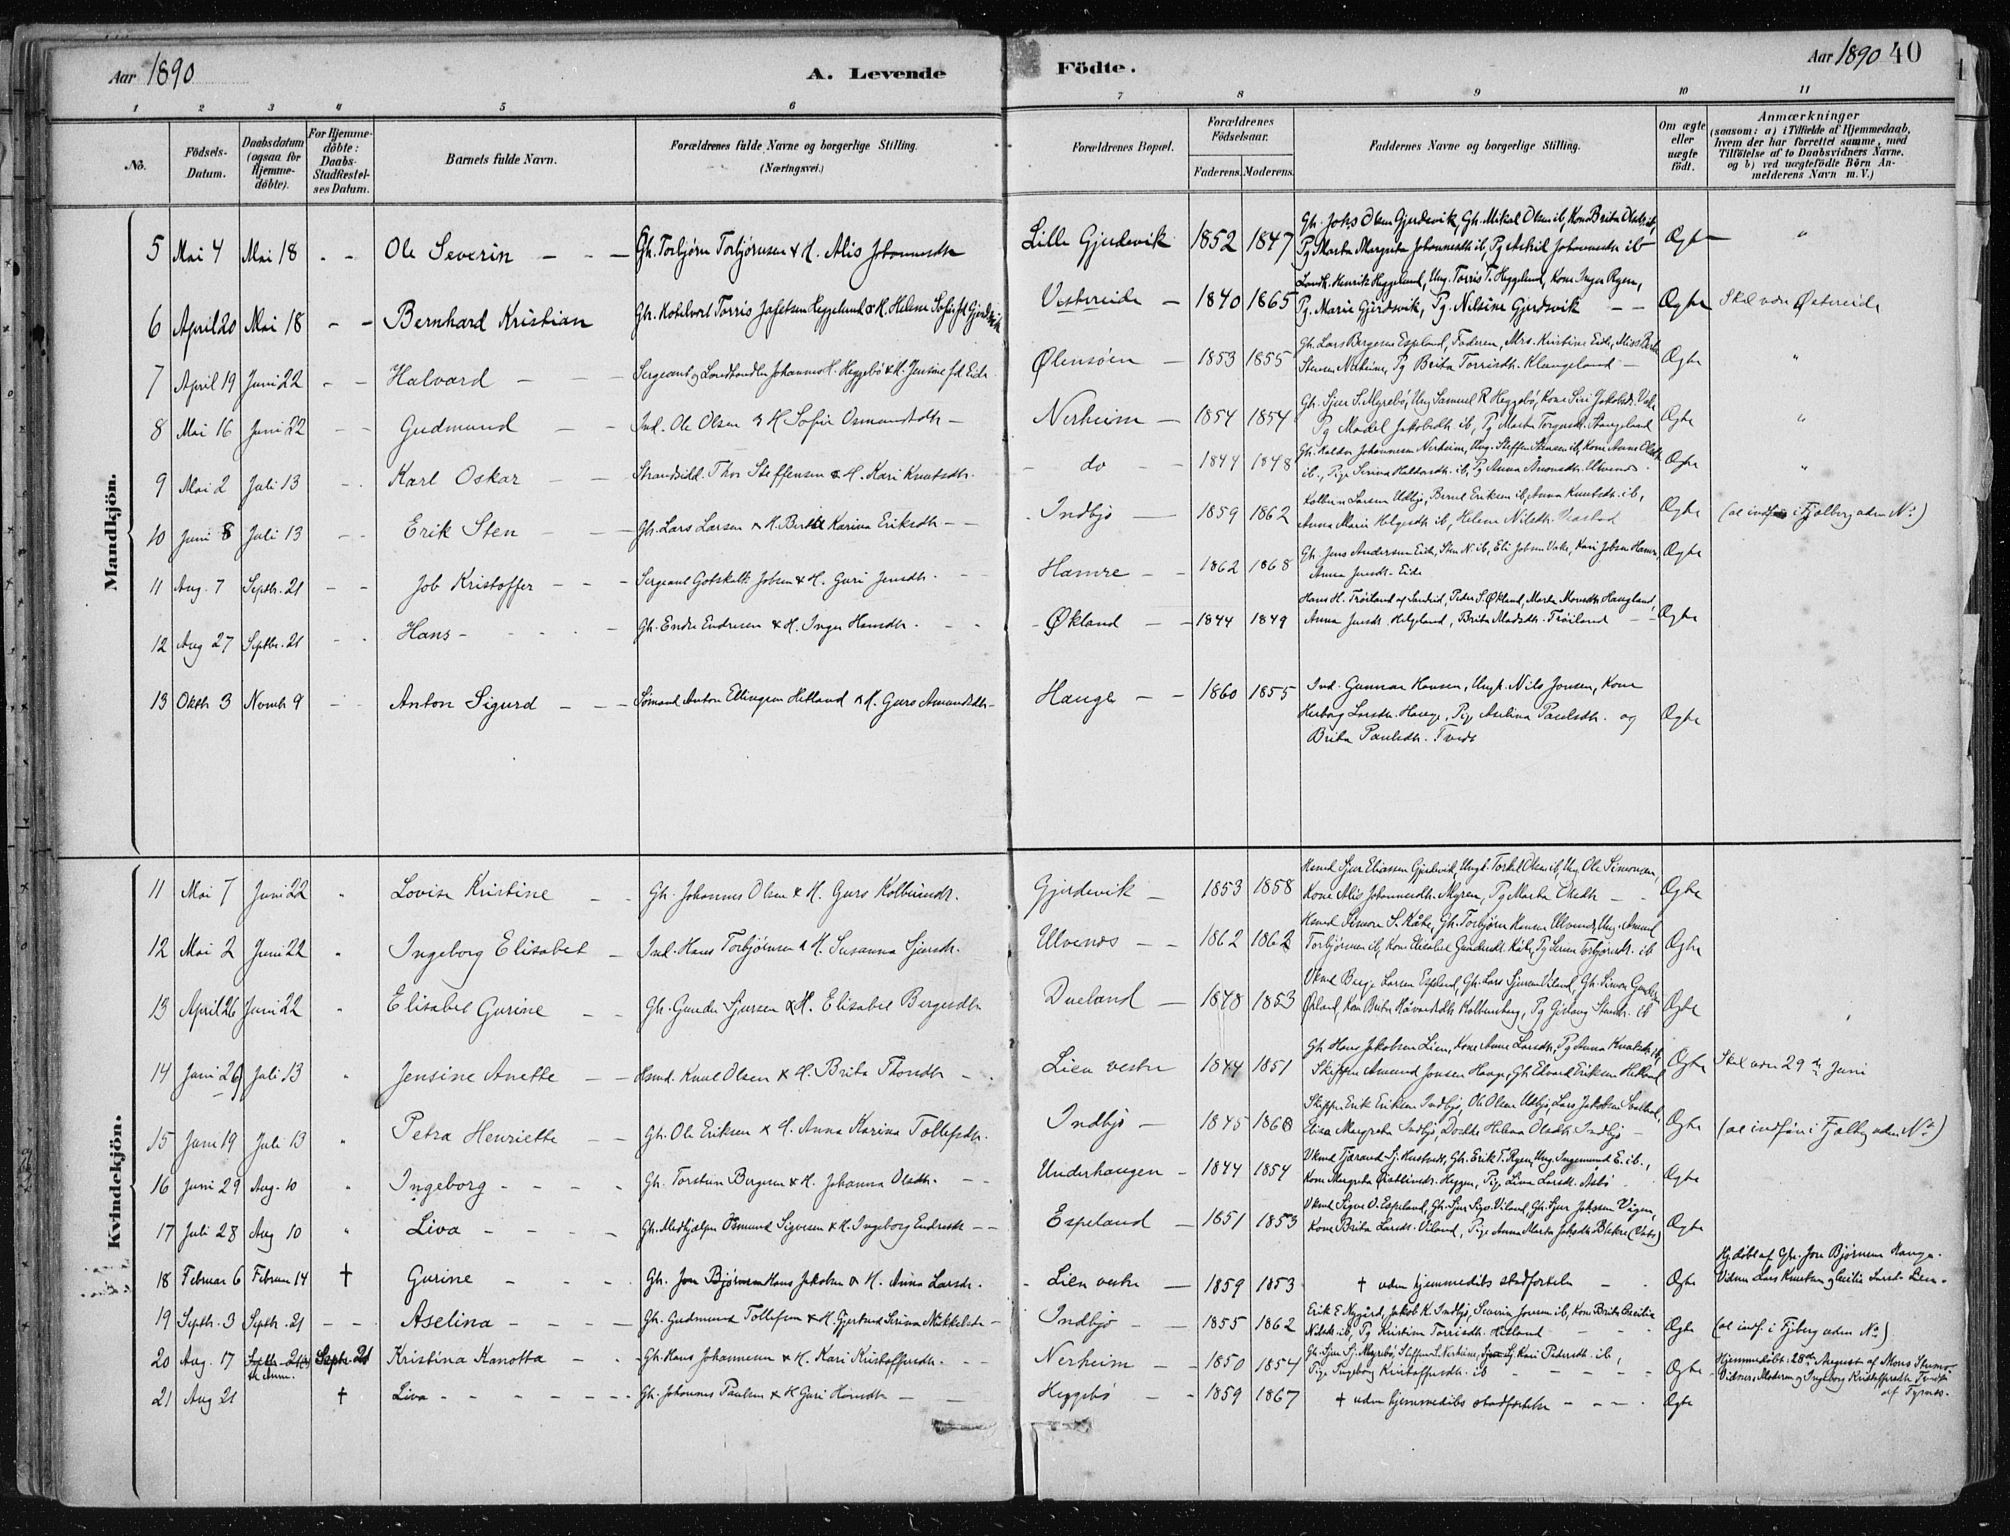 Aar 1890
A. Levende Födte.
Aar 1890 40
1 2 3 4 5 6 7 8 9 10 11
No.
Födsels-Datum.
Daabsdatum (ogsaa for Hjemme-döbte).
For Hjemme-döbte: Daabs-Stadfæstel-ses Datum.
Barnets fulde Navn.
Forældrenes fulde Navne og borgerlige Stilling. (Næringsvei.)
Forældrenes Bopæl.
Forældrenes Födselsaar.
Faderens. Moderens.
Faddernes Navne og borgerlige Stilling.
Om ægte eller uægte födt.
Anmærkninger (saasom: a) i Tilfælde af Hjemmedaab, hvem der har forrettet samme, med Tilföielse af to Daabsvidners Navne, og b) ved uægtefödte Börn An-melderens Navn m. V.)
Mandkjön.
5 Mai 4 Mai 18 - - Ole Severin - - Gh. Torbjørn Torbjørnsen & H. Alis Johannesdtr Lille Gjerdevik 1852 1847 Gh. Johs Olsen Gjerdevik, Gh. Mikal Olsen ib, Kone Brita Olsdtr ib,
Pg Marta Margreta Johannesdtr ib, Pg Astrid Johannesdtr ib Ægte "
6 April 20 Mai 18 - - Bernhard Kristian Gh. Hotelvert Torris Jofetsen Heggelund & H. Helene Sofie fd Gjerdsvik Vestereide 1840 1865 Landh. Henrik Heggelund, Ung. Torris T. Heggelund, Kone Inger Rygen,
Pg. Marie Gjerdsvik, Pg. Nelsine Gjerdsvik Ægte Skal være Østereide
7 April 19 Juni 22 - - Halvard Sergeant og Landhandler Johannes H. Heggebö & H. Jensine fd Eide Ølensöen 1853 1855 Gh. Lars Bergesen Espeland, Faderen, Mrs. Kristine Eide, Miss Berta
Stensen Nerheim, Pg Brita Torrisdtr. Klungeland Ægte "
8 Mai 16 Juni 22 - - Gudmund Ind. Ole Olsen & H Sofie Osmundsdtr Nerheim 1854 1854 Gh. Sjur S. Myrebö, Ung Samuel R Heggebö, Kone Siri Jakobsdr. Vaka
Pg Madel Jakobsdtr ib, Pg Marta Torgersdtr. Stangeland Ægte "
9 Mai 2 Juli 13 - - Karl Oskar Strandsidd. Thor Steffensen & H. Kari Knutsdtr. do 1844 1848 Gh. Haldor Johannesen Nerheim, Ung. Steffen Stensen ib, Kone Anna Olsdtr
ib., Pige Serina Haldorsdtr. ib, Pg Anna Amonsdtr. Ulvenes Ægte "
10 Juni 8 Juli 13 - - Erik Sten Gh. Lars Larsen & H. Berthe Karina Eriksdtr Indbjo 1859 1862 Kolbein Larsen Udbjo, Bernt Eriksen ib, Anna Knutsdtr. ib,
Anna Marie Helgesdtr ib, Helene Nilsdtr. Ægte (al indf i Fjelberg uden No)
11 Aug. 7 Septbr. 21 - - Job Kristoffer Sergeant Gotskalk Jobsen & H. Guri Jensdtr. Hamre 1862 1868 Gh. Jens Andersen Eide, Sten N. ib, Eli Jobsen Vaka, Kari Jobsen Hamre,
Anna Jensdtr. Eide Ægte
12 Aug 27 Septbr. 21 - - Hans Gh. Endre Endresen & H. Inger Hansdtr. Økland 1844 1849 Hans H. Tröiland af Sandeid, Peder S. Økland, Marta Monsdtr. Haugland,
Anna Jensdr. Helgeland, Brita Madsdtr. Tröiland Ægte
13 Oktb 3 Novmb 9 - - Anton Sigurd Sømand Anton Ellingsen Hetland & H. Guro Amundsdtr Hauge 1860 1855 Ind. Gunnar Hansen, Ungk. Nils Jonsen, Kone
Herborg Larsdtr. Hauge, Pig. Aselina Paulsdtr. og
Brita Paulsdtr. Tvedt Ægte
Kvindekjön.
11 Mai 7 Juni 22 " Lovise Kristine Gh. Johannes Olsen & H. Guro Kolbeinsdr. Gjerdevik 1853 1858 Husmd Sjur Eliassen Gjerdevik, Ungk. Torkel Olsen ib, Ung Ole Simonsen,
Kone Alis Johannesdtr. Myren, Pg Marta Olsdtr Ægte
12 Mai 2 Juni 22 " Ingeborg Elisabet Ind. Hans Torbjörnsen & H. Susanna Sjursdr. Ulvenes 1862 1862 Husmd Simon S. Kåte, Gh. Torbjörn Hansen Ulvenes, Ung. Amund
Torbjörnsen ib, Kone Elisabet Gundersdr. Kåte, Pg Serina Torbjörnsdtr. ib Ægte
13 April 26 Juni 22 " Elisabet Gurine Gh. Gunder Sjursen & H. Elisabet Bergesdtr Dueland 1848 1853 Vkmd Berge Larsen Espeland, Gh. Lars Sjursen Viland, Gh. Simon
Økland, Kone Brita Håvardsdtr. Kolbensberg, Pg Gislaug Stensdr. ib Ægte
14 Juni 26 Juli 13 " Jensine Anette Husmd. Knut Olsen & H. Brita Thorsdtr Lien vestre 1844 1851 Gh Hans Jakobsen Lien, Kone Anna Larsdtr, Pg Anna Knutsdtr ib,
Skipper Amund Jonsen Hauge, Gh. Edvard Eriksen Hetland Ægte Skal være 29de Juni
15 Juni 19 Juli 13 " Petra Henriette Gh. Ole Eriksen & H. Anna Karina Tollefsdtr. Indbjo 1845 1860 Skipper Erik Eriksen Indbjo, Ole Olsen Udbjo, Lars Jakobsen
Elisa Margreta Indbjo, Dorthe Helena Olsdtr Indbjo Ægte (al indfør i Fjelbg uden No)
16 Juni 29 Aug. 10 " Ingeborg Gh. Torstein Bergesen & H. Johanna Olsdtr. Underhaugen 1844 1854 Vkmd Tjærand Sj. Hustveit, Gh. Erik T. Rygen, Ung. Ingemund E. ib.,
Kone Margreta Heggen, Pige Lina Larsdr. Aasbö Ægte
17 Juli 28 Aug 10 " Liva Gh. Medhjælper Osmund Sigvesen & H Ingeborg Endresdtr Espeland 1851 1853 Vkmd Sigve O. Espeland, Gh. Sjur Sigv. Viland, Gh. Sjur Johssen Vågen,
Kone Brita Larsdr. Viland, Pige Anna Marta Johsdtr Blekre (Vats) Ægte
18 Februar 6 Februar 14 † Gurine Gh. Jon Björnsen Hans Jakobsen & H. Anna Larsdr. Lien vestre 1859 1853 † uden hjemmedåbs stadfæstelse Ægte Hjdöbt af Gh. Jon Björnsen Hauge.
Vidner Lars Knutsen og Cecilie Larsdr Lien.
19 Septbr. 3 Septbr. 21 - - Aselina Gh. Gudmund Tollefsen & H. Gjertrud Serina Mikkelsdtr Indbjo 1855 1862 Erik E Nygård, Jakob K. Indbjo, Severin Jonsen ib, Kone Brita Cecilie
Nilsdr. ib, Pg Kristine Torrisdtr. Hetland Ægte (al indf. i Fjberg uden No)
20 Aug. 17 Septbr 21 Septbr. 21 Kristina Kanotta Gh. Hans Johannesen & H. Kari Kristoffersdtr. Nerheim 1850 1854 Gh. Sjur Sj. Myrebö, Steffen L. Nerheim, Kari Pedersdtr. ib,
Pige Ingeborg Kristoffersdtr. ib Ægte Hjemmedöbt 28de August af Mons Stensö
Vidner: Moderen og Ingeborg Kristoffersdtr Tveite
21 Aug 21 † Liva Gh. Johannes Paulsen & H Guri Hansdtr Heggebö 1859 1867 † uden hjemmedåbs stadfæstelse Ægte